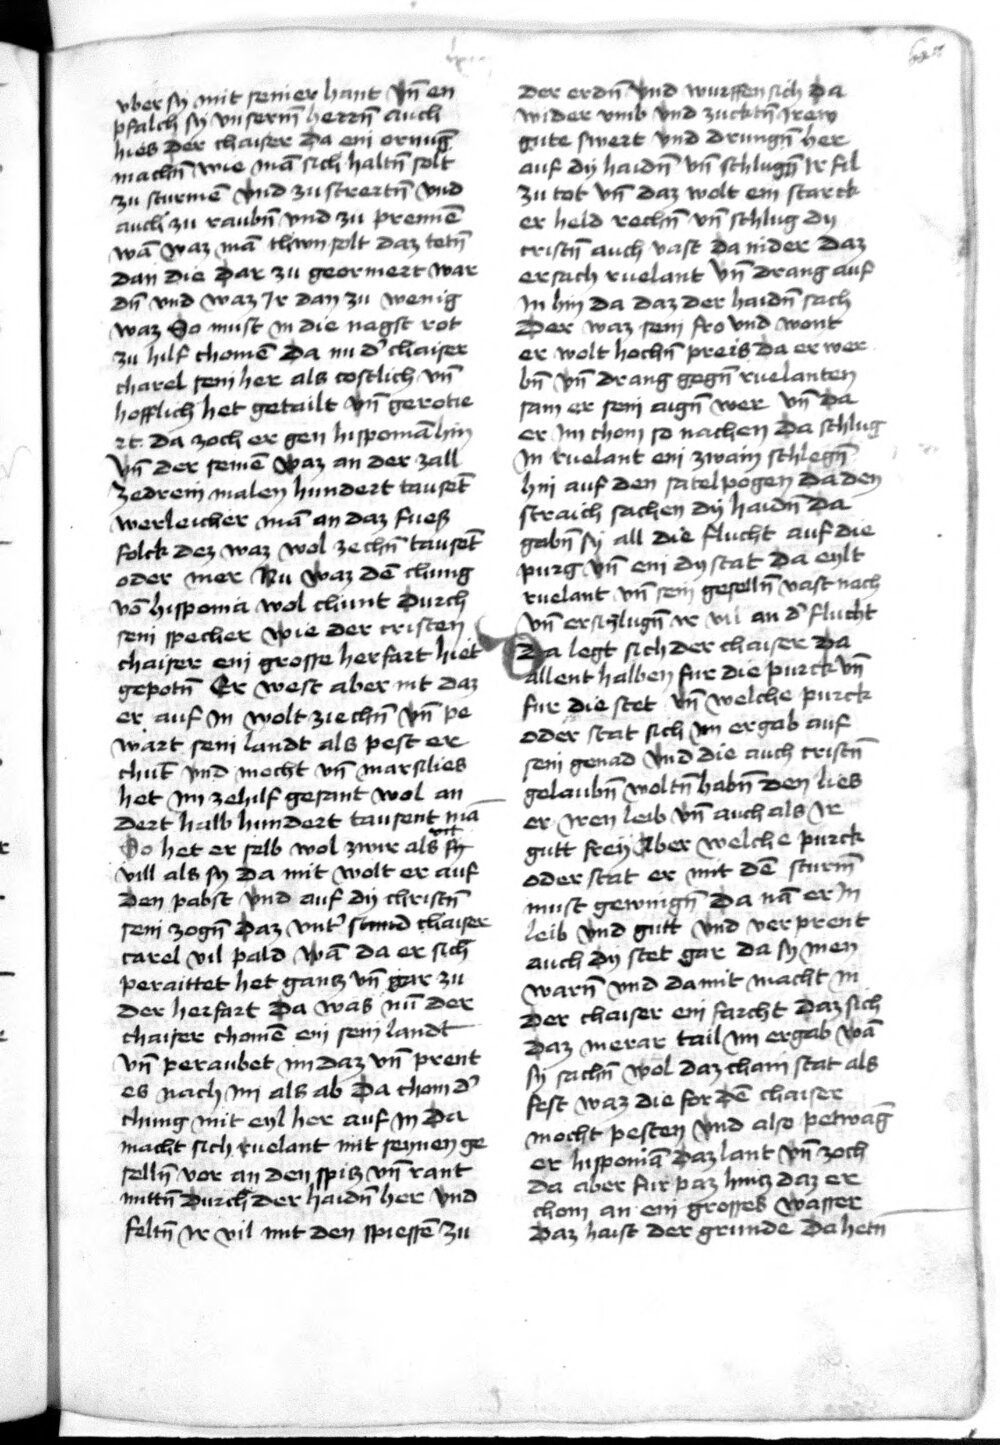 vber sy mit seiner hant vn̄ en
pfalch sy vnserm̄ herrn̄ auch
hies der chaiser da ein ornuḡ
machn̄ wie mā sich haltn̄ solt
zu sturmē vnd zu streitn̄ vnd
auch zu raubn̄ vnd zu prennē
wā waz mā thun solt daz tetn̄
dan die dar zu georniert war
dn̄ vnd waz Ir dan zu wenig
waz So must in die nagst rot
zu hilf chomē Da nu d' chaiser
charel sein her als costlich vn̄
hofflich het getailt vn̄ gerotie
rt. da zoch er gen hispomā hin
vn̄ der seinē waz an der zall
zedrein malen hundert tausēt
werleicher mā an daz fueß
folck dez waz wol zechn̄ tausēt
oder mer Nu waz dē chung
vō hispomia wol chunt durch
sein specher wie der cristen
chaiser ein grosse herfart hiet
gepotn̄ Er west aber nit daz
er auf in wolt ziechn̄ vn̄ pe
wart sein landt als pest er
chūt vnd mocht vn̄ marsilies
het im zehilf gesant wol an
dert halb hundert tausent mā
So het er selb wol zwir als vil
vill als sy da mit wolt er auf
den pabst vnd auf dy christn̄
sein zogn̄ daz vnt' stund chaiser
carel vil pald wā da er sich
peraittet het gantz vn̄ gar zu
der herfart Da was nū der
chaiser chomē ein sein landt
vn̄ peraubet im daz vn̄ prent
es nach im als ab Da chom d'
chung mit eyl her auf in Da
macht sich ruelant mit seynen ge
selln̄ vor an den spitz vn̄ rant
mittn̄ durch der haidn̄ her vnd
feltn̄ ir vil mit den spiessē zu
der erdn̄ vnd wurffen sich da
wider vmb vnd zucktn̄ Irew
gute swert vnd drungn̄ her
auf dy haidn̄ vn̄ schlugn̄ Ir fil
zu tot vn̄ daz wolt ein starck
er held rechn̄ vn̄ schlug dy
cristn̄ auch vast da nider Daz
ersach ruelant vn̄ drang auf
in hin da daz der haidn̄ sach
Der waz sein fro vnd wont
er wolt hochn̄ preis da er wer
bn̄ vn̄ drang gegn̄ ruelanten
sam er sein aign̄ wer vn̄ da
er im chom so nachen da schlug
in ruelant ein zwain schlegn̄
hin auf den satelpogen da den
straich sachen dy haidn̄ Da
gabn̄ sy all die flucht auf die
purg vn̄ ein dy stat Da eylt
ruelant vn̄ sein geselln̄ vast nach
vn̄ erschlugn̄ ir vil an d' flucht
Da legt sich der chaiser da
allent halben fur die purck vn̄
fur die stet vn̄ welche purck
oder stat sich im ergab auf
sein genad vnd die auch cristn̄
gelaubn̄ woltn̄ habn̄ den lies
er iren leib vn̄ auch als Ir
gutt frey Aber welche purck
oder stat er mit dē sturm̄
must gewingn̄ Da nā er in
leib vnd gutt vnd verprent
auch dy stet gar da sy inen
warn̄ vnd da mit macht in
der chaiser ein farcht daz sich
daz merar tail im ergab wā
sy sachn̄ wol daz chain stat als
fest waz die for dē chaiser
mocht pesten vnd also petwāg
er hisponiā daz lant vn̄ zoch
da aber fur paz hintz daz er
chom an ein grosses wasser
daz haist der grunde Da hetn